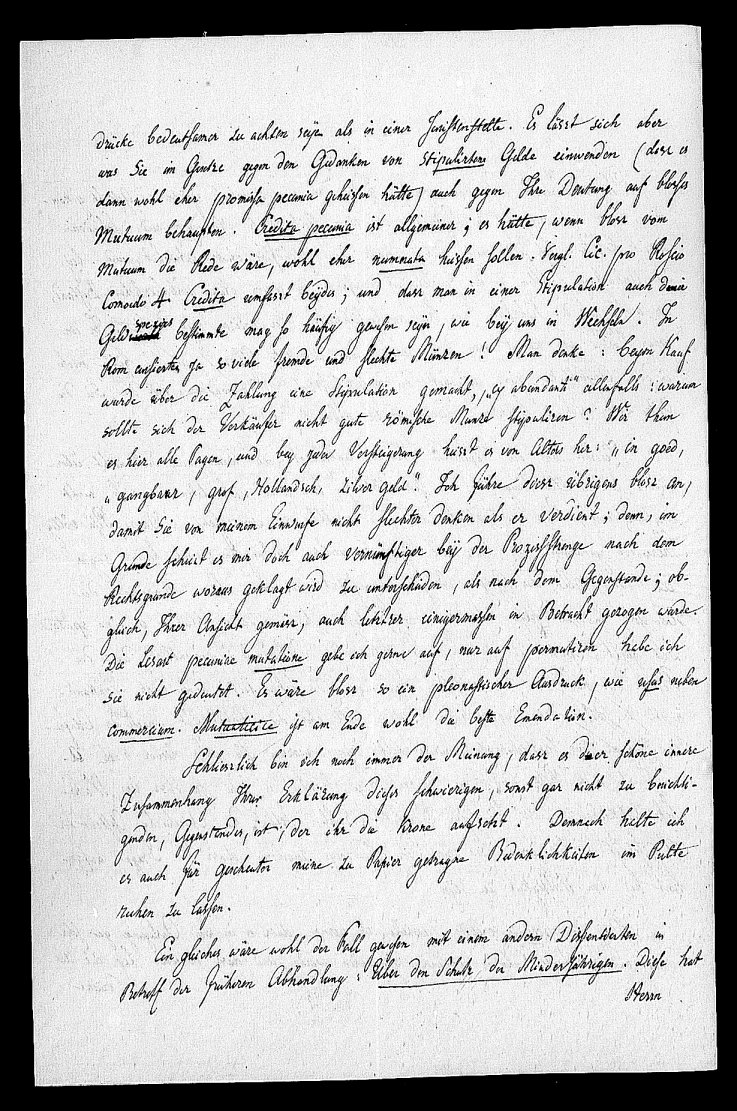 drücke bedeutsamer zu achten seyn als in einer Juristenstelle. Es lässt sich aber
was Sie im Gantze gegen den Gedanken von stipulirtem Gelde einwenden (dass es
dann wohl eher promissa pecunia geheissen hätte) auch gegen Ihre Deutung auf blosses
Mutuum behaupten. Credita pecunia ist allgemeiner; es hätte, wenn bloss vom
Mutuum die Rede wäre, wohl eher numerata heissen sollen. Vergl. Cic. pro Roscio
Comoedo 4 Credita umfasst beydes; und dass man in einer Stipulation auch die
Geldspezies bestimmte mag so häufig gewesen seyn, wie bey uns in Wechseln. In
Rom cursierten ja so viele fremde und schlechte Münzen! Man denke: beym Kauf
wurde über die Zahlung eine Stipulation gemacht, „ex abundanti" allenfalls: warum
sollte sich der Verkäufer nicht gute römische Münze stipuliren? Wir thun
es hier alle Tagen, und bey jeder Versteigerung heisst es von Alters her: „in goed,
„gangbaar, grof, Hollandsch, zilver geld". Ich führe diess übrigens bloss an,
damit Sie von meinem Einwurfe nicht schlechter denken als er verdient; denn, im
Grunde scheint es mir doch auch vernünftiger bey der Prozessstrenge nach dem
Rechtsgrunde woraus geklagt wird zu unterscheiden, als nach dem Gegenstande; ob-
gleich, Ihrer Ansicht gemäss, auch letzter einigermassen in Betracht gezogen wurde.
Die Lesart pecuniae mutatione gebe ich gerne auf, nur auf permutiren habe ich
sie nicht gedeutet. Es wäre bloss so ein pleonastischer Ausdruck, wie usus neben
commercium. Mutuaticiae ist am Ende wohl die beste Emendation.
Schliesslich bin ich noch immer der Meinung, dass es der schöne innere
Zusammenhang Ihrer Erklärung dieses schwierigen, sonst gar nicht zu beseiti-
genden, Gegenstandes, ist, der ihr die Krone aufsetzt. Demnach halte ich
es auch für gescheuter meine zu Papier gebragne Bedenklichkeiten im Pulte
ruhen zu lassen.
Ein gleiches wäre wohl der Fall gewesen mit einem andern Dissentirten in
Betreff der früheren Abhandlung: Über den Schutz der Minderjährigen. Diese hat
Herrn